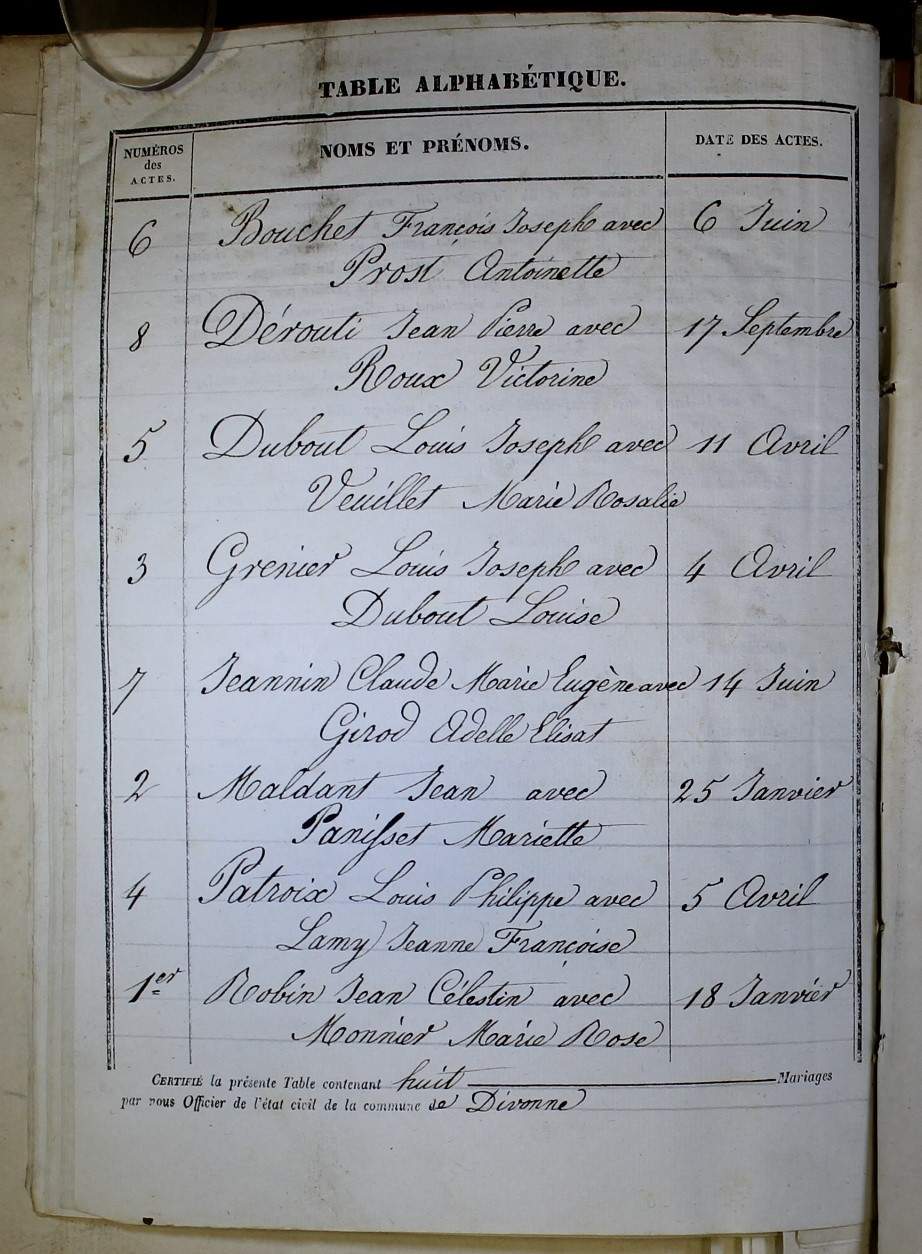 TABLE ALPHABÉTIQUE.
NUMÉROS
des
ACTES.
NOMS ET PRÉNOMS.
DATE DES ACTES.
6 Bouchet François Joseph avec 6 Juin
Prost Antoinette
8 Dérouti Jean Pierre avec 17 Septembre
Roux Victorine
5 Dubout Louis Joseph avec 11 Avril
Veuillet Marie Rosalie
3 Grenier Louis Joseph avec 4 Avril
Dubout Louise
7 Jeannin Claude Marie Eugène avec 14 Juin
Girod Adelle Elisat
2 Maldant Jean avec 25 Janvier
Panisset Mariette
4 Patroix Louis Philippe avec 5 Avril
Lamy Jeanne Françoise
1er Robin Jean Célestin avec 18 Janvier
Monnier Marie Rose
CERTIFIÉ la présente Table contenant huit Mariages
par nous Officier de l'état civil de la commune de Divonne